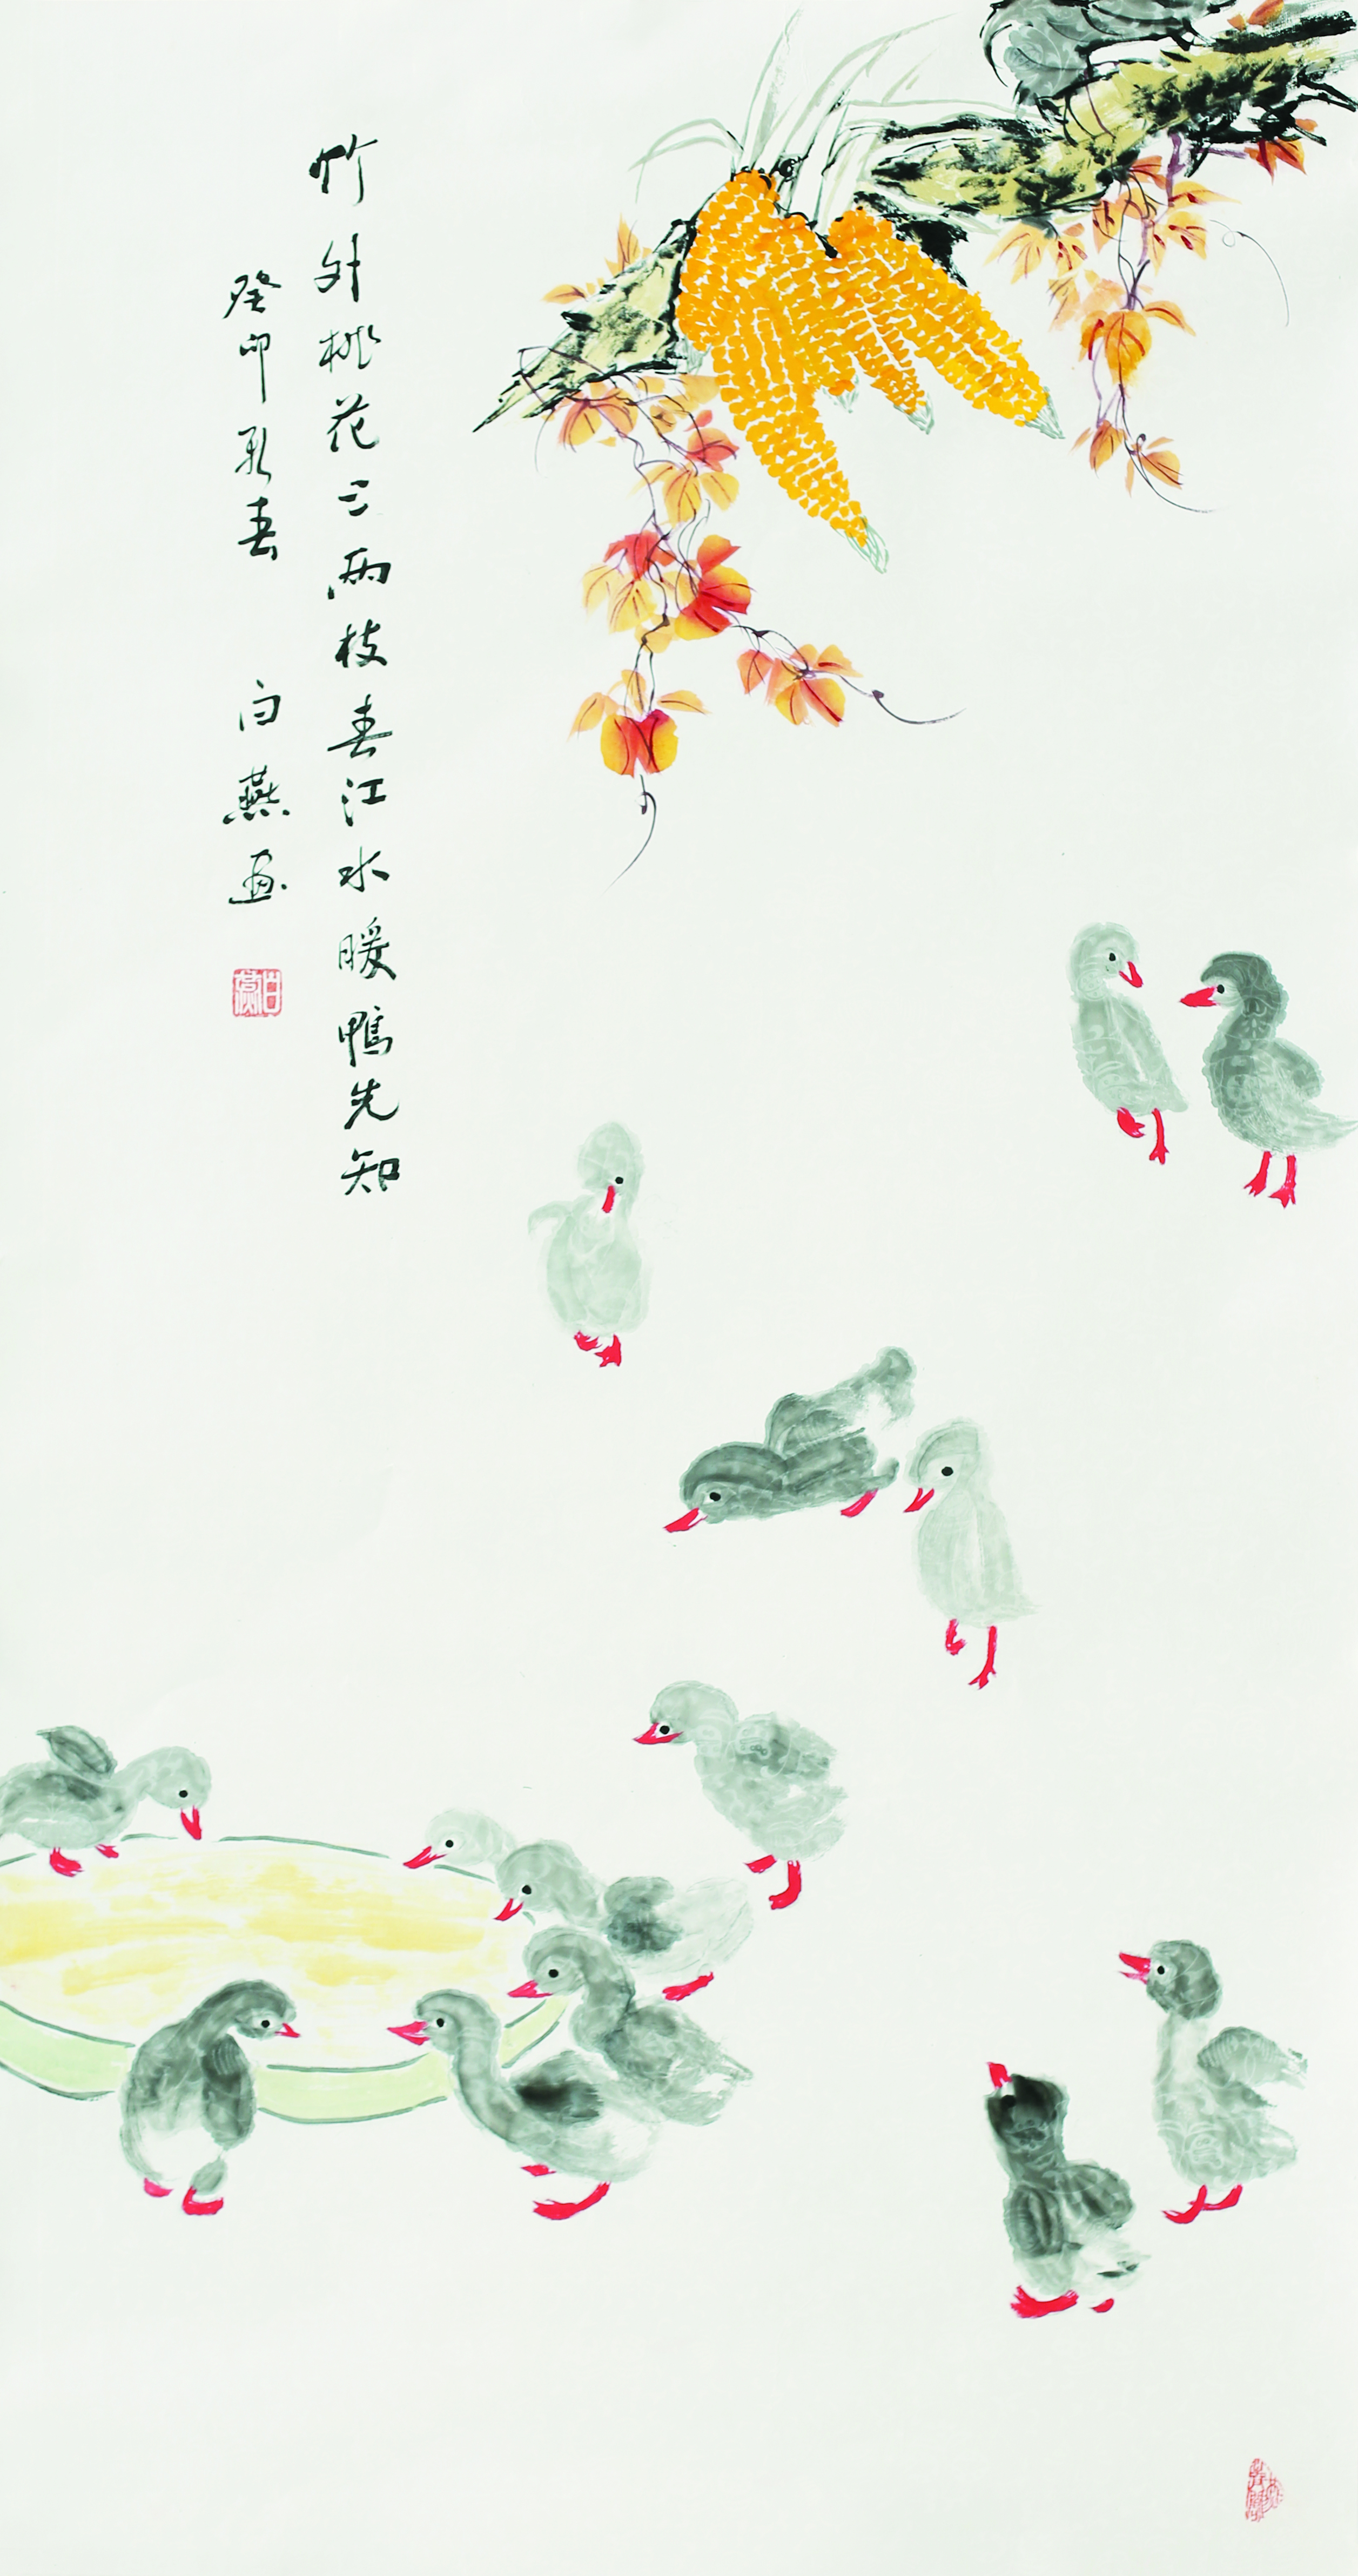 竹外桃花三两枝春江水暖鸭先知
癸卯孟春 白燕画
白燕